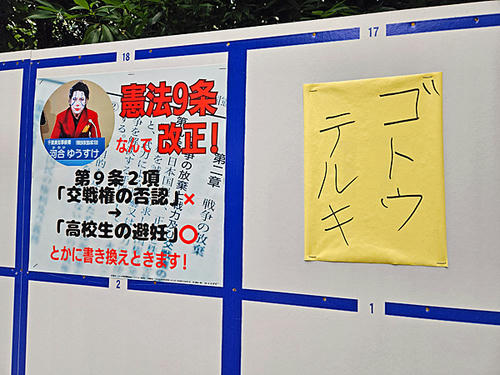 18
17
憲法9条
なんて改正！
河合 ゆうすけ
第二章 戦争の放棄
第９条２項
「交戦権の否認」×
→
「高校生の避妊」○
とかに書き換えときます！
ゴトウ
テルキ
2
1